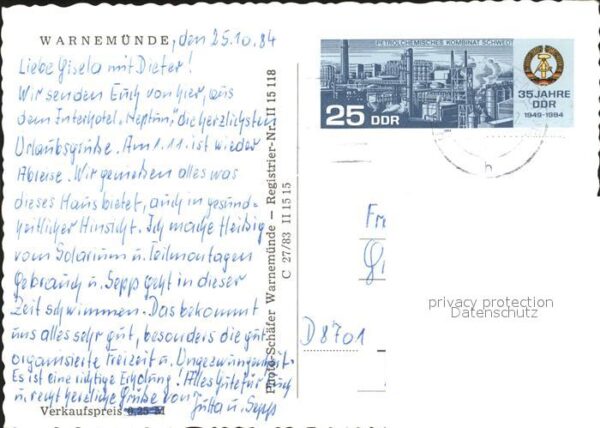 WARNEMÜNDE, den 25.10.84
Liebe Gisela mit Dieter!
Wir senden Euch von hier, aus
dem Interhotel "Neptun", die herzlichsten
Urlaubsgrüße. Am 1.11. ist wieder
Abreise. Wir genießen alles was
dieses Haus bietet, auch in gesund-
heitlicher Hinsicht. Ich mache fleißig
vom Solarium u. Teilmontagen
Gebrauch u. Sepps geht in dieser
Zeit schwimmen. Das bekommt
uns alles sehr gut, besonders die gut
organisierte Freizeit u. Ungezwungenheit.
Es ist eine richtige Erholung! Alles Gute für Euch
u. recht herzliche Grüße von
Jutta u. Sepps
Verkaufspreis 0,25 M
Photo-Schäfer Warnemünde — Registrier-Nr. II 15 118
C 27/83 II 15 15
PETROLCHEMISCHES KOMBINAT SCHWEDT
25 DDR
35 JAHRE
DDR
1949-1984
h
Fr
D 8701
privacy protection
Datenschutz